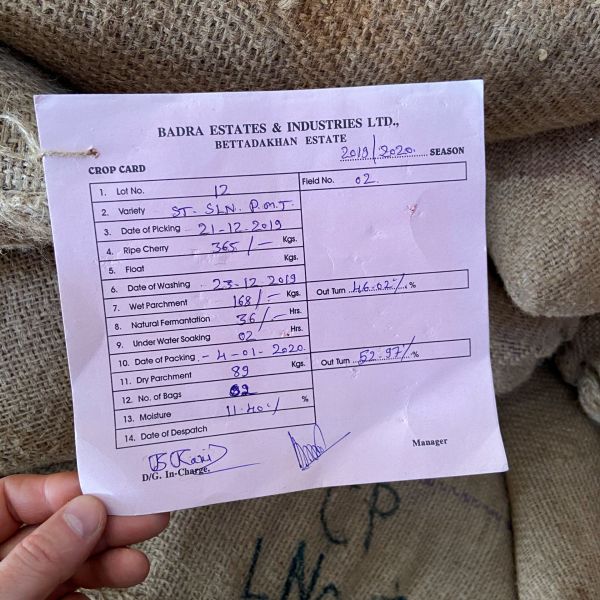 BADRA ESTATES & INDUSTRIES LTD.,
BETTADAKHAN ESTATE
2019/2020. SEASON
CROP CARD
1. Lot No. 12 Field No. 02.
2. Variety ST- SLN. P.M.T.
3. Date of Picking 21-12-2019
4. Ripe Cherry 365/- Kgs.
5. Float Kgs.
6. Date of Washing 23-12 2019
7. Wet Parchment 168/- Kgs. Out Turn 46-02% %
8. Natural Fermantation 36/- Hrs.
9. Under Water Soaking 02 Hrs.
10. Date of Packing - 4-01-2020.
11. Dry Parchment 89 Kgs. Out Turn 52-97% %
12. No. of Bags 02
13. Moisture 11.40% %
14. Date of Despatch
D/G. In-Charge. Manager
CP
LNo